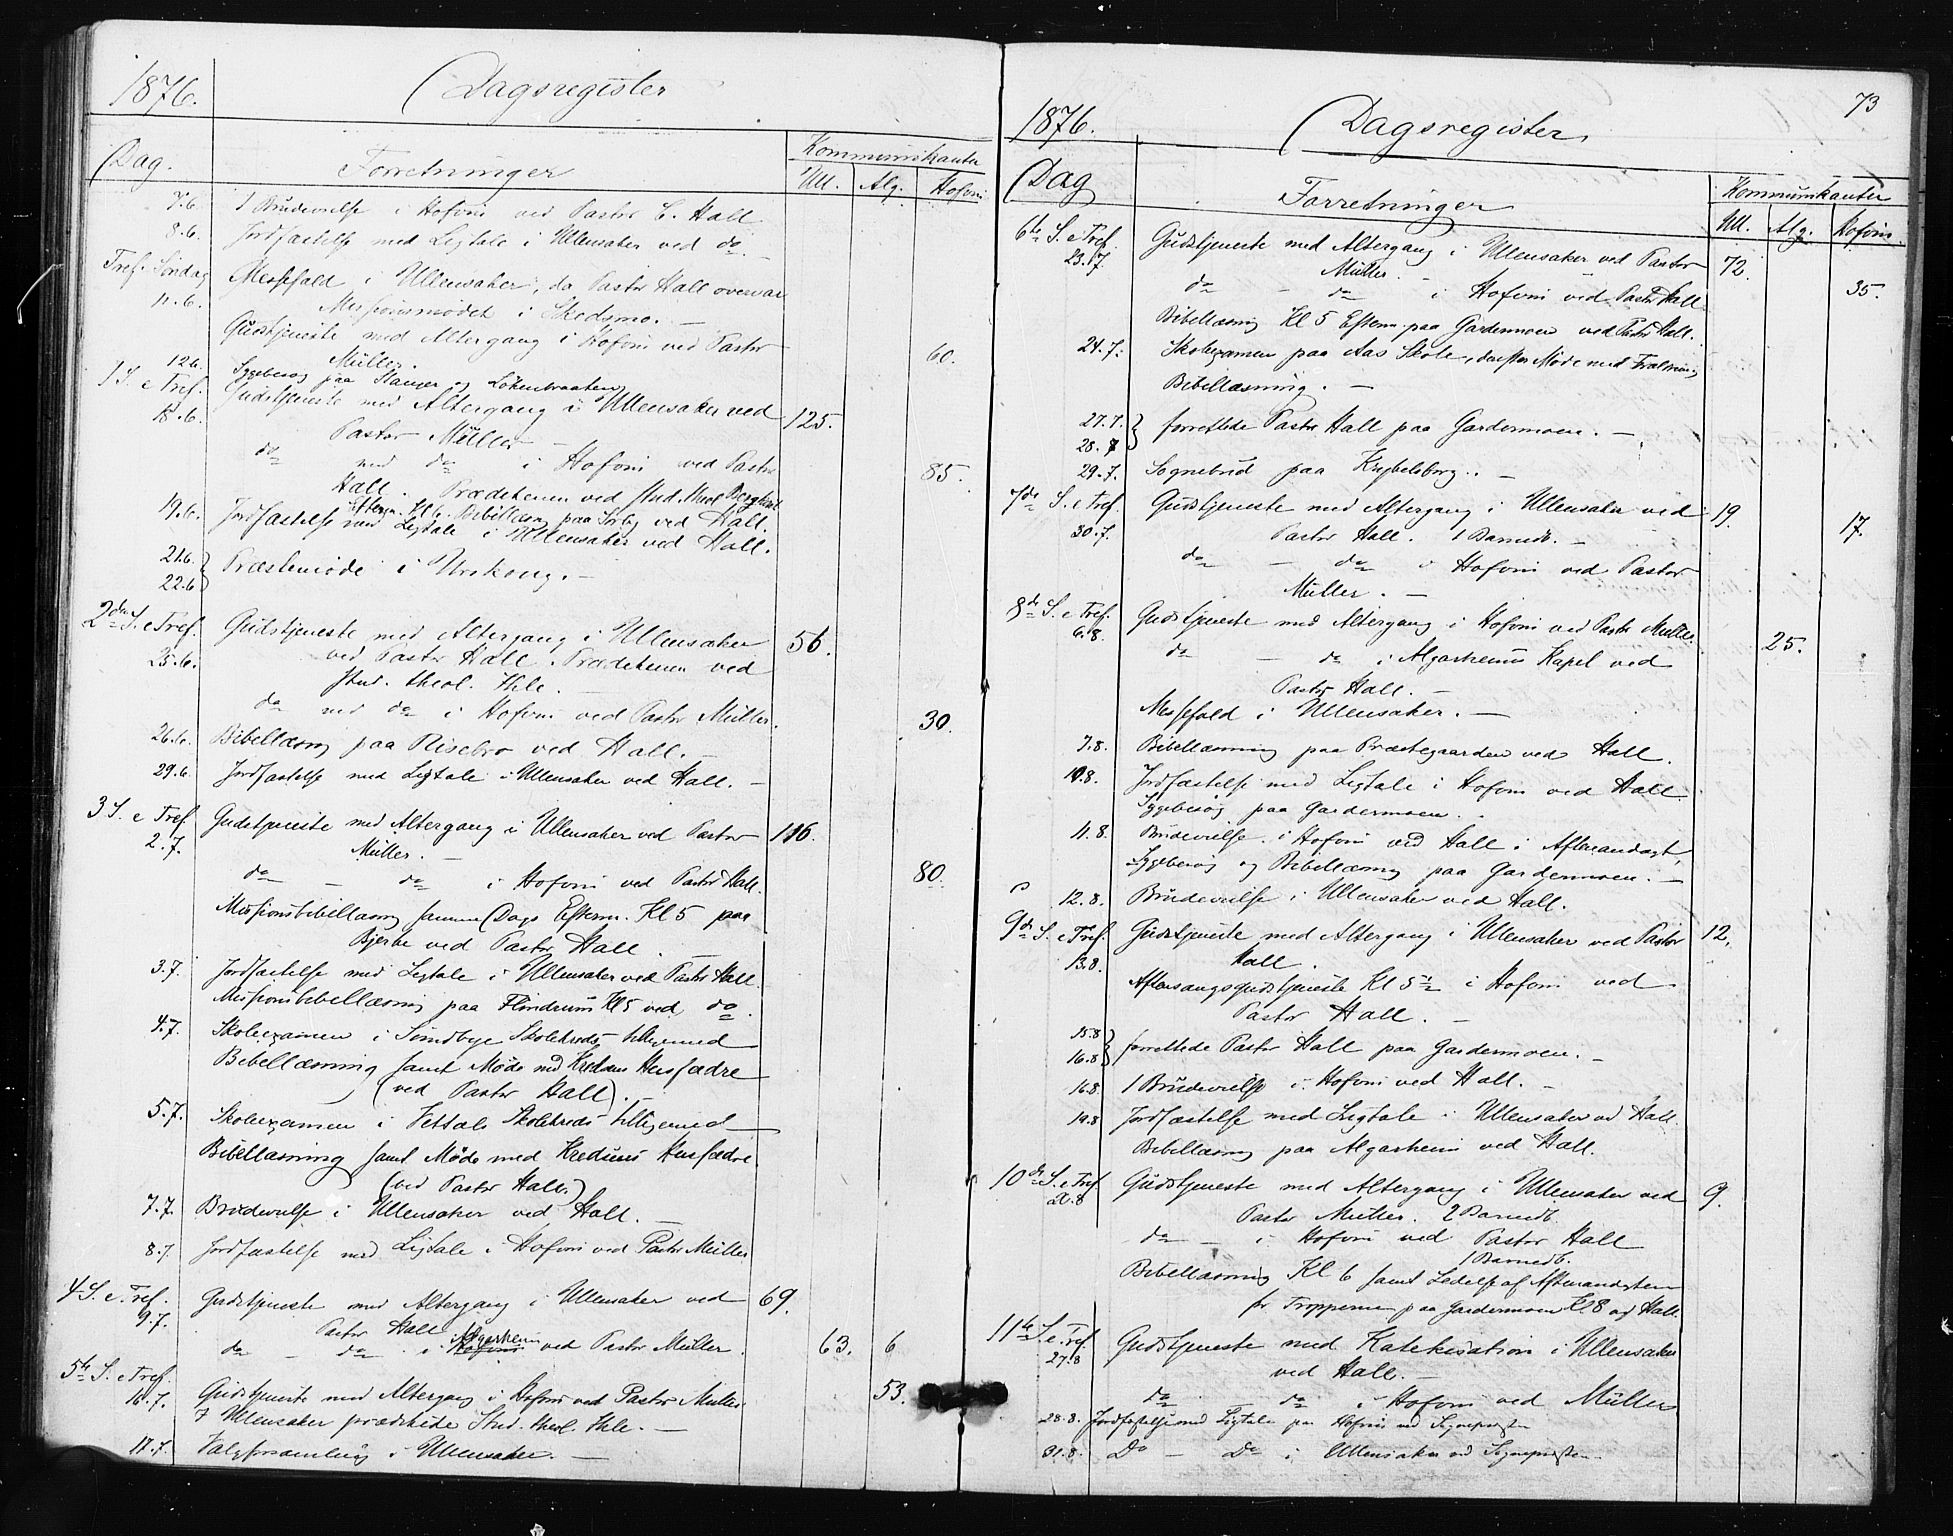 1876. Dagsregister
Dag. Forretninger Kommunikanter
Ull. Alg. Hofvin
7.6. 1 Brudevielse i Hofvin ved Pastor C. Hall
8.6. Jordfæstelse med Ligtale i Ullensaker ved do. -
Tref. Søndag Messefald i Ullensaker, da Pastor Hall overvar
11.6. Missionsmødet i Skedsmo. -
Gudstjeneste med Altergang i Hofvin ved Pastor
Müller. 60.
12.6. Sygebesøg paa Hauger og Løkenbraaten
1 S. e Tref. Gudstjeneste med Altergang i Ullensaker ved 125.
18.6. Pastor Müller -
do med do i Hofvin ved Pastor 85.
Hall. Prædikenen ved Stud. theol
Efterm. Kl 6. Bibellæsn paa Sørby ved Hall.
19.6. Jordfæstelse med Ligtale i Ullensaker ved Hall.
21.6. } Præstemøde i Urskoug. -
22.6 }
2den S. e Tref. Gudstjeneste med Altergang i Ullensaker 56.
25.6. ved Pastor Hall. Prædikenen ved
Stud. theol. Ihle. -
do med do i Hofvin ved Pastor Müller. 30.
26.6. Bibellæsng paa Risebro ved Hall. -
29.6. Jordfæstelse med Ligtale i Ullensaker ved Hall. -
3 S. e Tref Gudstjeneste med Altergang i Ullensaker ved Pastor 116.
2.7. Müller. -
do - do i Hofvin ved Pastor Hall. 80.
Missionsbibellæsng samme Dags Efterm. Kl 5 paa
Bjerke ved Pastor Hall. -
3.7. Jordfæstelse med Ligtale i Ullensaker ved Pastor Hall.
Missionsbibellæsning paa Flindrum Kl 5 ved do.
4.7. Skoleexamen i Sundbye Skolekreds tilligemed
Bibellæsning samt Møde med Kredsens Husfædre
(ved Pastor Hall). -
5.7. Skoleexamen i Vettals Skolekreds tilligemed
Bibellæsning samt Møde med Kredsens Husfædre
(ved Pastor Hall.)
7.7. Brudevielse i Ullensaker ved Hall. -
8.7. Jordfæstelse med Ligtale i Hofvin ved Pastor Müller
4 S. e. Tref. Gudstjeneste med Altergang i Ullensaker ved 69.
9.7. Pastor Hall
Algarheim
do - do i Hofvin ved Pastor Müller. 63. 6
5te S. e Tref. Gudstjeneste med Altergang i Hofvin ved Pastor Müller. 53.
16.7. I Ullensaker prædikede Stud. theol. Ihle. -
17.7. Valgforsamling i Ullensaker. -
73
1876. Dagsregister
Dag Forretninger Kommunikanter
Ull. Alg. Hofvin.
6te S. e Tref. Gudstjeneste med Altergang i Ullensaker ved Pastor 72.
23.7. Müller. -
do - do i Hofvin ved Pastor Hall 35.
Bibellæsning Kl 5 Efterm. paa Gardermoen ved Pastor Hall.
24.7. Skoleexamen paa Aas Skole, derefter Møde med
Bibellæsning. -
27.7. } forrettede Pastor Hall paa Gardermoen. -
28.7 }
29.7. Sognebud paa Krybelsborg. -
7de S. e Tref. Gudstjeneste med Altergang i Ullensaker ved 19.
30.7. Pastor Hall. 1 Barnedb. - 17.
do - do i Hofvin ved Pastor
Müller. -
8de S. e Tref. Gudstjeneste med Altergang i Hofvin ved Pastor Müller.
6.8. do - do i Algarheims Kapel ved 25.
Pastor Hall. -
Messefald i Ullensaker. -
7.8. Bibellæsning paa Præstegaarden ved Hall.
10.8. Jordfæstelse med Ligtale i Hofvin ved Hall
Sygebesøg paa Gardermoen.
11.8. Brudevielse i Hofvin ved Hall i Aftenandagt,
Sygebesøg og Bibellæsng paa Gardermoen. -
12.8. Brudevielse i Ullensaker ved Hall.
9de S. e Tref. Gudstjeneste med Altergang i Ullensaker ved Pastor 12.
13.8. Hall.
Aftensangsgudstjeneste Kl 5 1/2 i Hofvin ved
Pastor Hall. -
15.8 } forrettede Pastor Hall paa Gardermoen. -
16.8 }
16.8. 1 Brudevielse i Hofvin ved Hall. -
19.8 Jordfæstelse med Ligtale i Ullensaker ved Hall.
Bibellæsng paa Algarheim ved Hall.
10de S. e Tref. Gudstjeneste med Altergang i Ullensaker ved 9.
20.8 Pastor Müller. 2 Barnedb.
do - i Hofvin ved Pastor Hall
1 Barnedb.
Bibellæsning Kl 6 samt Ledelse af Aftenandagten
for Tropperne paa Gardermoen Kl 8 ved Hall.
11te S. e Tref. Gudstjeneste med Katekisation i Ullensaker
27.8 ved Hall. -
do do i Hofvin ved Müller
28.8. Jordfæstelse med Ligtale paa Hofvin ved Sognepræsten
31.8. Do - Do i Ullensaker ved Sognepræsten